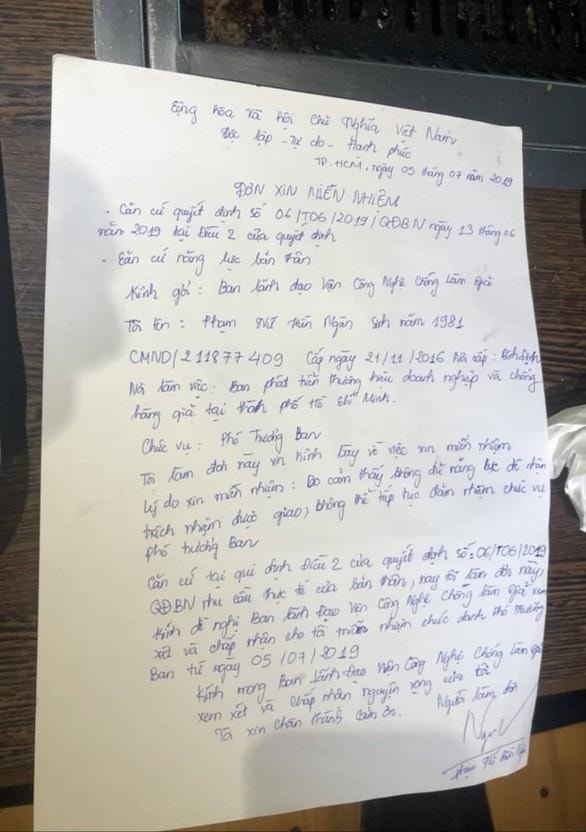 Cộng hòa xã hội Chủ Nghĩa Việt Nam
Độc lập - Tự do - Hạnh phúc
TP. HCM, ngày 05 tháng 07 năm 2019
ĐƠN XIN MIỄN NHIỆM
- Căn cứ quyết định số 06/T06/2019/QĐBN ngày 13 tháng 06
năm 2019 tại Điều 2 của quyết định
- Căn cứ năng lực bản thân
Kính gởi: Ban lãnh đạo Viện Công Nghệ Chống Làm Giả
Tôi tên: Phạm Nữ Hiền Ngân Sinh năm 1981
CMND/211877409 Cấp ngày 21/11/2016 Nơi cấp: Bình Định
Nơi làm việc: Ban phát triển thương hiệu doanh nghiệp và chống
hàng giả tại thành phố Hồ Chí Minh.
Chức vụ: Phó Trưởng Ban
Tôi làm đơn này xin kính về việc xin miễn nhiệm
Lý do xin miễn nhiệm: Do cảm thấy không đủ năng lực để nhận
trách nhiệm được giao, không thể tiếp tục đảm nhiệm chức vụ
phó trưởng Ban
Căn cứ tại qui định Điều 2 của quyết định số: 06/T06/2019
QĐBN nhu cầu thực tế của bản thân, nay tôi làm đơn này,
kính đề nghị Ban lãnh Đạo Viện Công Nghệ Chống làm giả xem
xét và chấp nhận cho tôi miễn nhiệm chức danh Phó Trưởng
Ban từ ngày 05/07/2019
Kính mong Ban Lãnh Đạo Viện Công Nghệ Chống Làm Giả
xem xét và chấp nhận nguyện vọng của tôi
Tôi xin chân thành cảm ơn. Người làm đơn